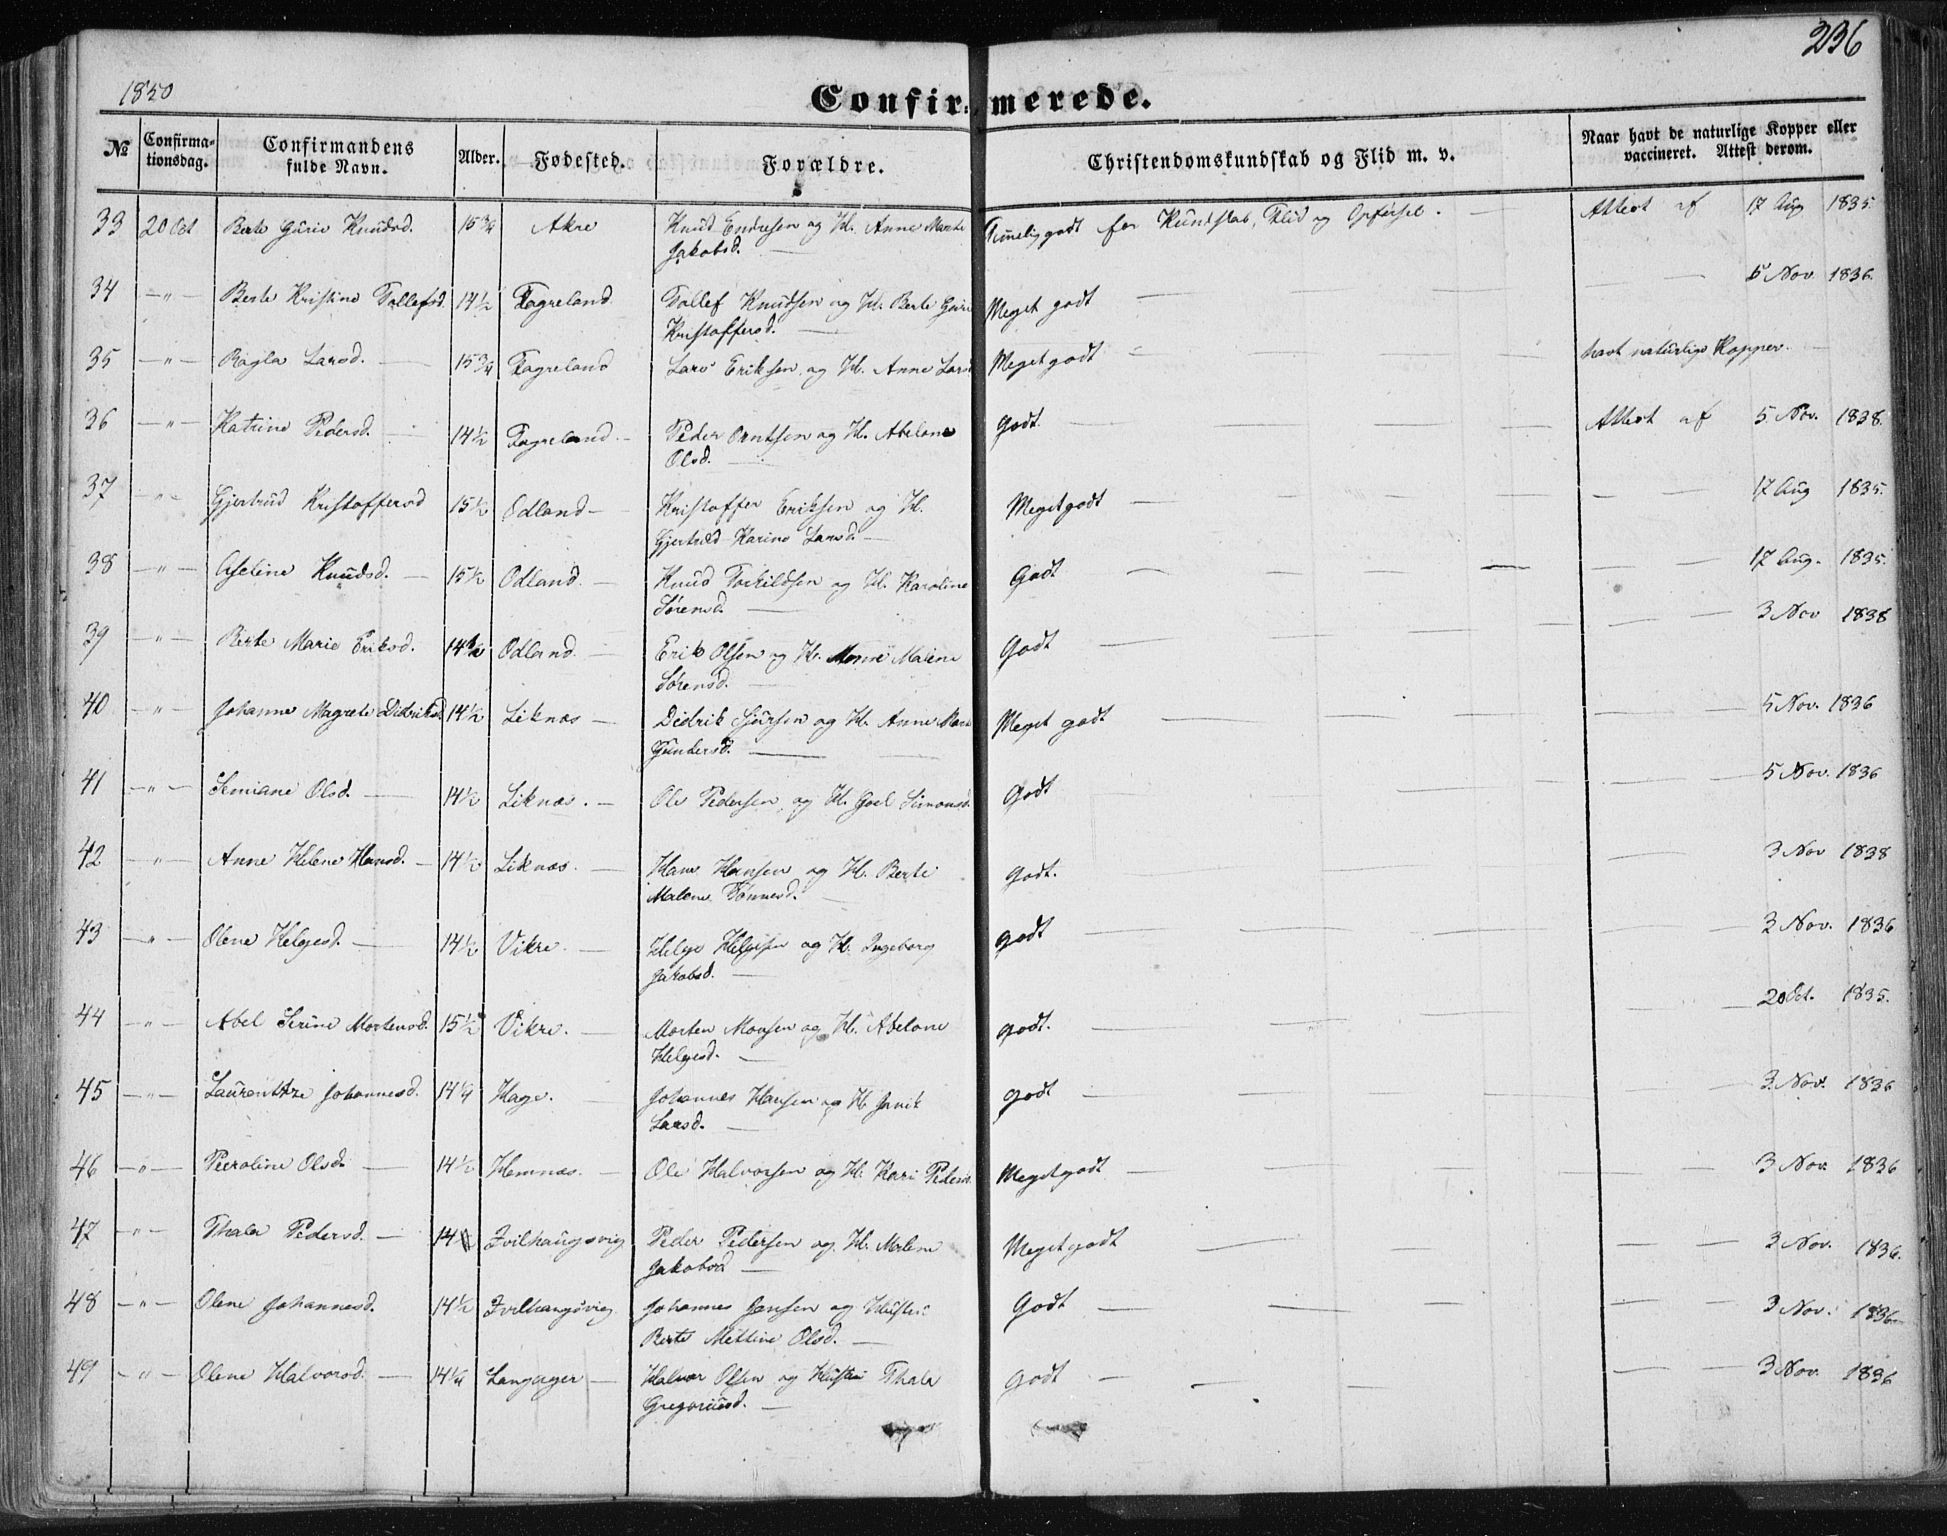 236
1850
Confirmerede.
№ Confirma-tionsdag. Confirmandens fulde Navn. Alder. Fødested. Forældre. Christendomskundskab og Flid m. v. Naar havt de naturlige Kopper eller vaccineret. Attest derom.
33 20 Oct Berte Gurie Knudsd. 15 3/4 Akre Knud Endresen og H. Anne Marte Temelig godt for Kundskab, Flid og Opførsel. Attest af 17 Aug 1835.
Jakobsd.
34 -"- Berte Kristine Tollefsd. 14 1/2 Fagreland Tollef Knudsen og H. Berte Guri Meget godt 5 Nov. 1836.
Kristoffersd.
35 -"- Ragla Larsd. 15 3/4 Fagreland Lars Eriksen og H. Anne Larsd Meget godt havt naturlige Kopper.
36 -"- Katrine Pedersd. 14 1/2 Fagreland Peder Orntsen og H. Abelone Godt Attest af 5 Nov. 1838.
Olsd.
37 -"- Gjertrud Kristoffersd 15 1/2 Odland Kristoffer Eriksen og H. Meget godt 17 Aug 1835.
Gjertrud Karine Larsd.
38 -"- Aseline Knudsd. 15 1/2 Odland Knud Torkildsen og H. Karoline Godt 17 Aug. 1835.
Sørensd.
39 -"- Berte Marie Eriksd. 14 1/2 Odland Erik Olsen og H. Malene Godt 3 Nov 1838
Sørensd.
40 -"- Johanne Magrete Didriksd. 14 1/2 Liknæs Didrik Sjursen og H. Anne Marte Meget godt 5 Nov. 1836
Gundersd.
41 -"- Semiane Olsd. 14 1/2 Liknæs. Ole Pedersen og H. Goel Simonsd. Godt 5 Nov. 1836
42 -"- Anne Helene Hansd. 14 1/2 Liknæs. Hans Hansen og H. Berte Godt. 3 Nov 1838
Malene Tønnesd.
43 -"- Olene Helgesd. 14 1/2 Vikre. Helge Helgesen og H. Ingeborg godt 3 Nov. 1836
Jakobsd.
44 -"- Abel Serine Mortensd. 15 1/2 Vikre. Morten Monsen og H. Abelone godt. 20 Oct. 1835.
Helgesd.
45 -"- Laurentze Johannesd. 14 1/4 Hage. Johannes Hansen og H. Janik godt 3. Nov. 1836
Larsd.
46 -"- Peeroline Olsd. 14 1/2 Hemnæs. Ole Halvorsen og H. Kari Pedersd. Meget godt 3 Nov. 1836
47 -"- Thala Pedersd. 14 Zvilhaugsvig Peder Pedersen og H. Malene Meget godt 3 Nov. 1836.
Jakobsd
48 -"- Olene Johannesd. 14 1/2 Zvilhaugsvig Johannes Jansen og Hustru Godt 3 Nov. 1836
Berte Mettine Olsd.
49 -"- Olene Halvorsd. 14 1/4 Langager Halvor Olsen og Hustru Thala Godt 3 Nov. 1836
Gregoriusd.